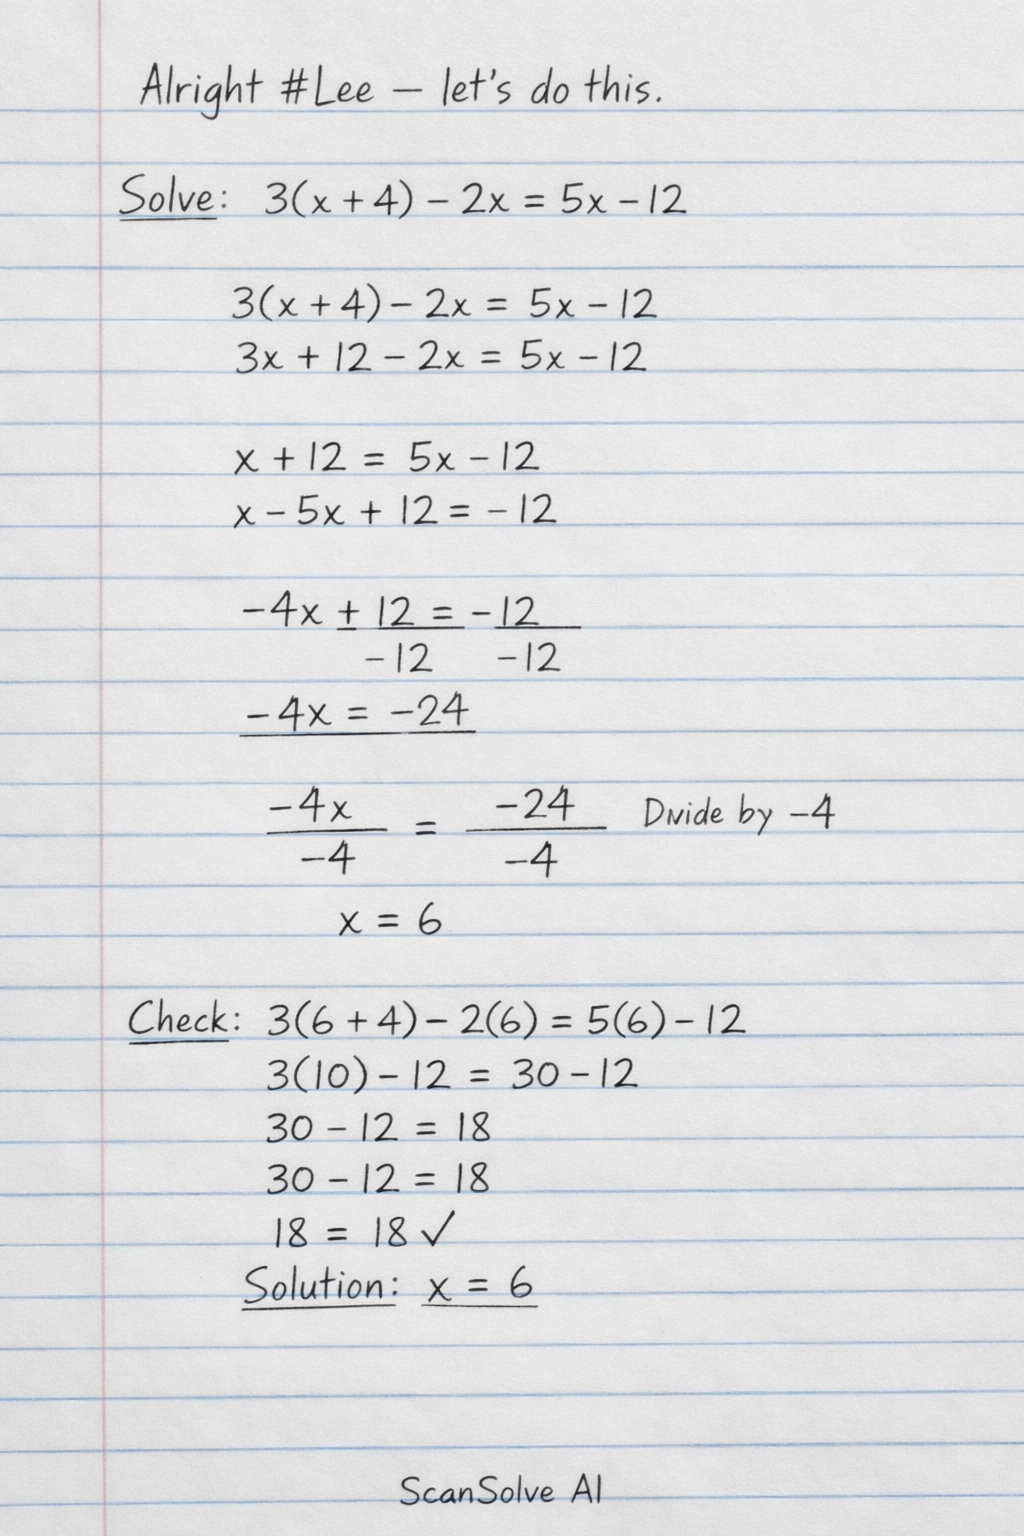 Alright #Lee — let's do this.
Solve: 3(x + 4) – 2x = 5x – 12
3(x + 4) – 2x = 5x – 12
3x + 12 – 2x = 5x – 12
x + 12 = 5x – 12
x – 5x + 12 = –12
–4x + 12 = –12
–12 –12
–4x = –24
–4x = –24 Divide by –4
–4 –4
x = 6
Check: 3(6 + 4) – 2(6) = 5(6) – 12
3(10) – 12 = 30 – 12
30 – 12 = 18
30 – 12 = 18
18 = 18 ✓
Solution: x = 6
ScanSolve AI